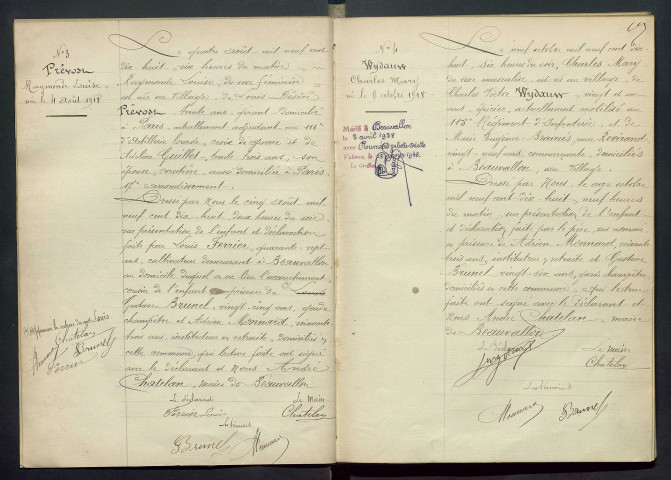 N° 3
Prévost
Raymonde Louise
née le 4 Août 1918
Le quatre août, mil neuf cent
dix-huit, six heures du matin
Raymonde Louise, du sexe féminin
est née au Village, de Louis
Prévost trente ans, gérant domicilié
à Paris, actuellement adjudant au 116e
d'Artillerie lourde, croix de guerre et de
Adeline Guillet, trente trois ans, son
épouse, couturière, aussi domiciliée à Paris
arrondissement.
Dressé par Nous le cinq Août mil
neuf cent dix-huit, deux heures du soir
sur présentation de l'enfant et déclaration
faite par Louis Ferrier, quarante sept
ans, cultivateur demeurant à Beauvallon
au domicile duquel a eu lieu l'accouchement
cousin de l'enfant en présence de Louis
Gustave Brunel, vingt cinq ans, garde
champêtre et Adrien Monnard, soixante
trois ans, instituteur en retraite, domiciliés en
cette commune, qui lecture faite ont signé
avec le déclarant et Nous André
Chatelan, maire de Beauvallon
Le déclarant Le Maire
Ferrier Louis Chatelan
Les témoins
Brunel Monnard
Louis
Chatelan
Monnard Brunel
Ferrier
N° 4
Wydauw
Charles Mary
né le 9 octobre 1918
Marié à Beauvallon
le 8 avril 1938
avec
Valence, le
Le Greffier
Le neuf octobre mil neuf cent dix-
huit, six heures du soir, Charles Mary
du sexe masculin est né au village de
Charles Victor Wydauw vingt et un
ans, épicier, actuellement mobilisé au
Régiment d'Infanterie, et de
Marie Eugénie
vingt neuf ans, commerçante, domiciliés
à Beauvallon, au Village.
Dressé par Nous le onze octobre
mil neuf cent dix-huit, neuf heures
du matin, sur présentation de l'enfant
et déclaration faite par le père, sus nommé
en présence de Adrien Monnard, soixante
trois ans, instituteur en retraite et Gustave
Brunel vingt-six ans, garde champêtre,
domiciliés en cette commune, qui lecture
faite ont signé avec le déclarant et
Nous André Chatelan, maire
de Beauvallon
Le déclarant Le Maire
Chatelan
Les témoins
Monnard Brunel